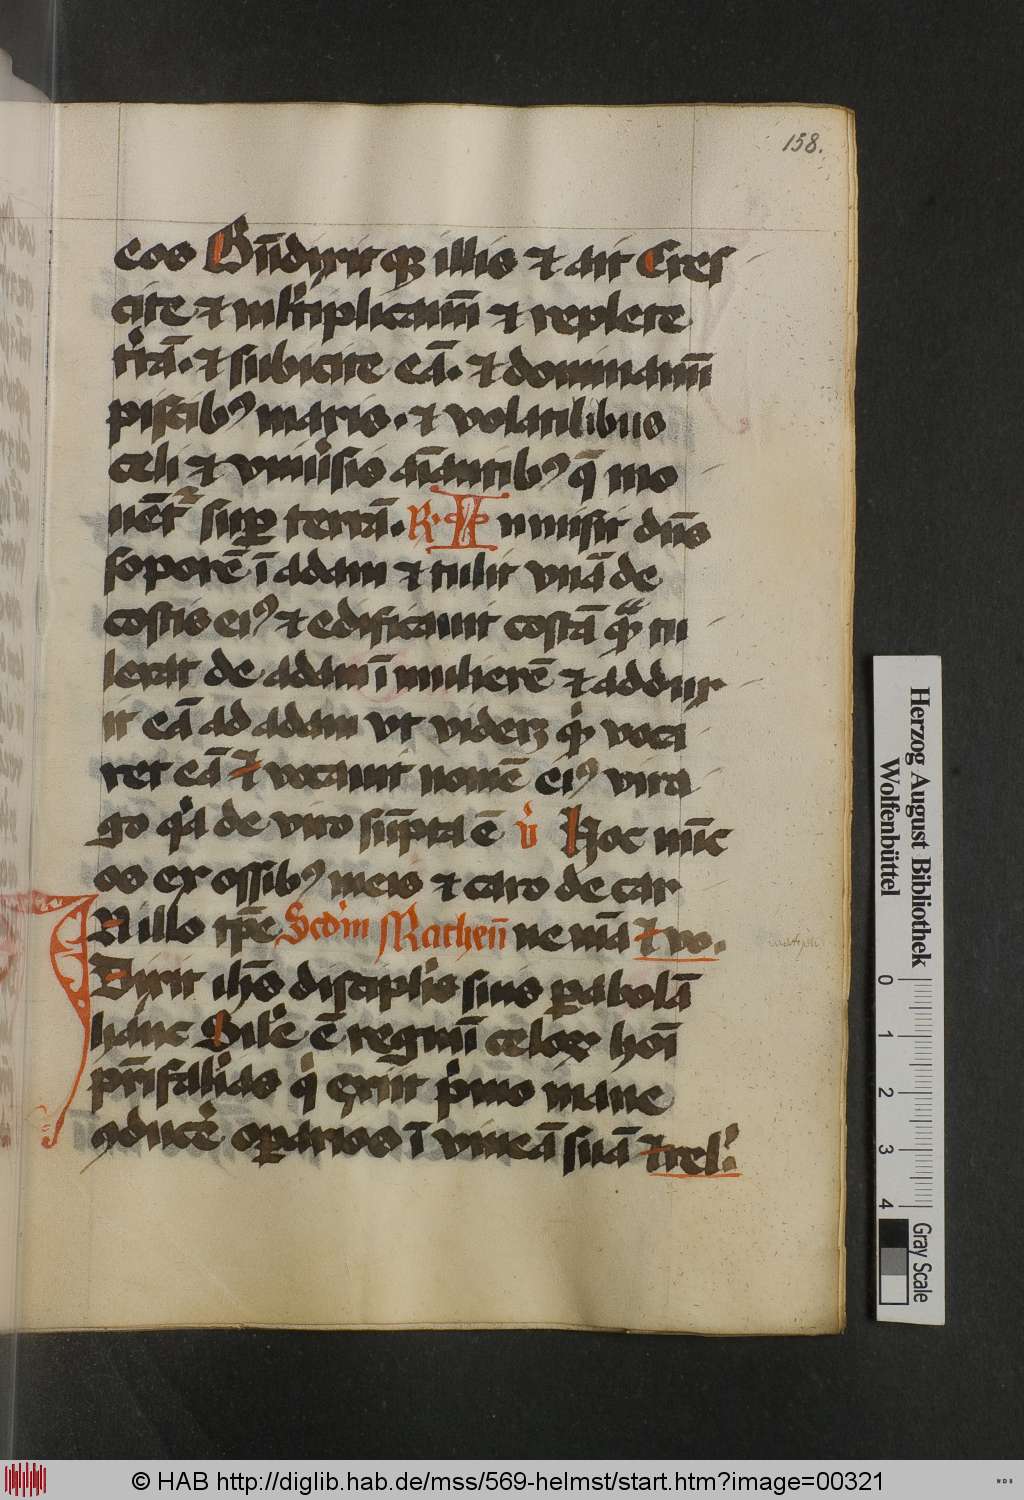 158.
eos Bn̄dixit qȝ illis et ait Cres
cite et ml̓tiplicamī et replete
t̓rā. et subicite eā. et dominamī
piscibꝰ maris. et volatilibus
celi et vniu̓sis aīantibꝰ q̄ mo
uēt᷑ suꝑ terrā. R. In misit dn̄s
soporē ī adam et tulit vnā de
costis eiꝰ et edificauit costā quā tu
lerat de adam ī mulierē et addux
it eā ad adam vt viderȝ qͥd voca
ret eā et vocauit nomē eiꝰ vira
go qͥa de viro sūpta ē v̓ Hoc nūc
os ex ossibꝰ meis et caro de car
IN illo tp̄e Scd̓m Matheū ne mea et vo.
Dixit ih̄s discipl̓is suis ꝑabolā
hanc Sil̓e ē regnū celoꝝ hoī
pr̄ifal̓ias qͥ exiit pͥmo mane
ꝯducē oꝑarios ī vineā suā et rel̓.
Herzog August Bibliothek
Wolfenbüttel
0 1 2 3 4
Gray Scale
© HAB http://diglib.hab.de/mss/569-helmst/start.htm?image=00321